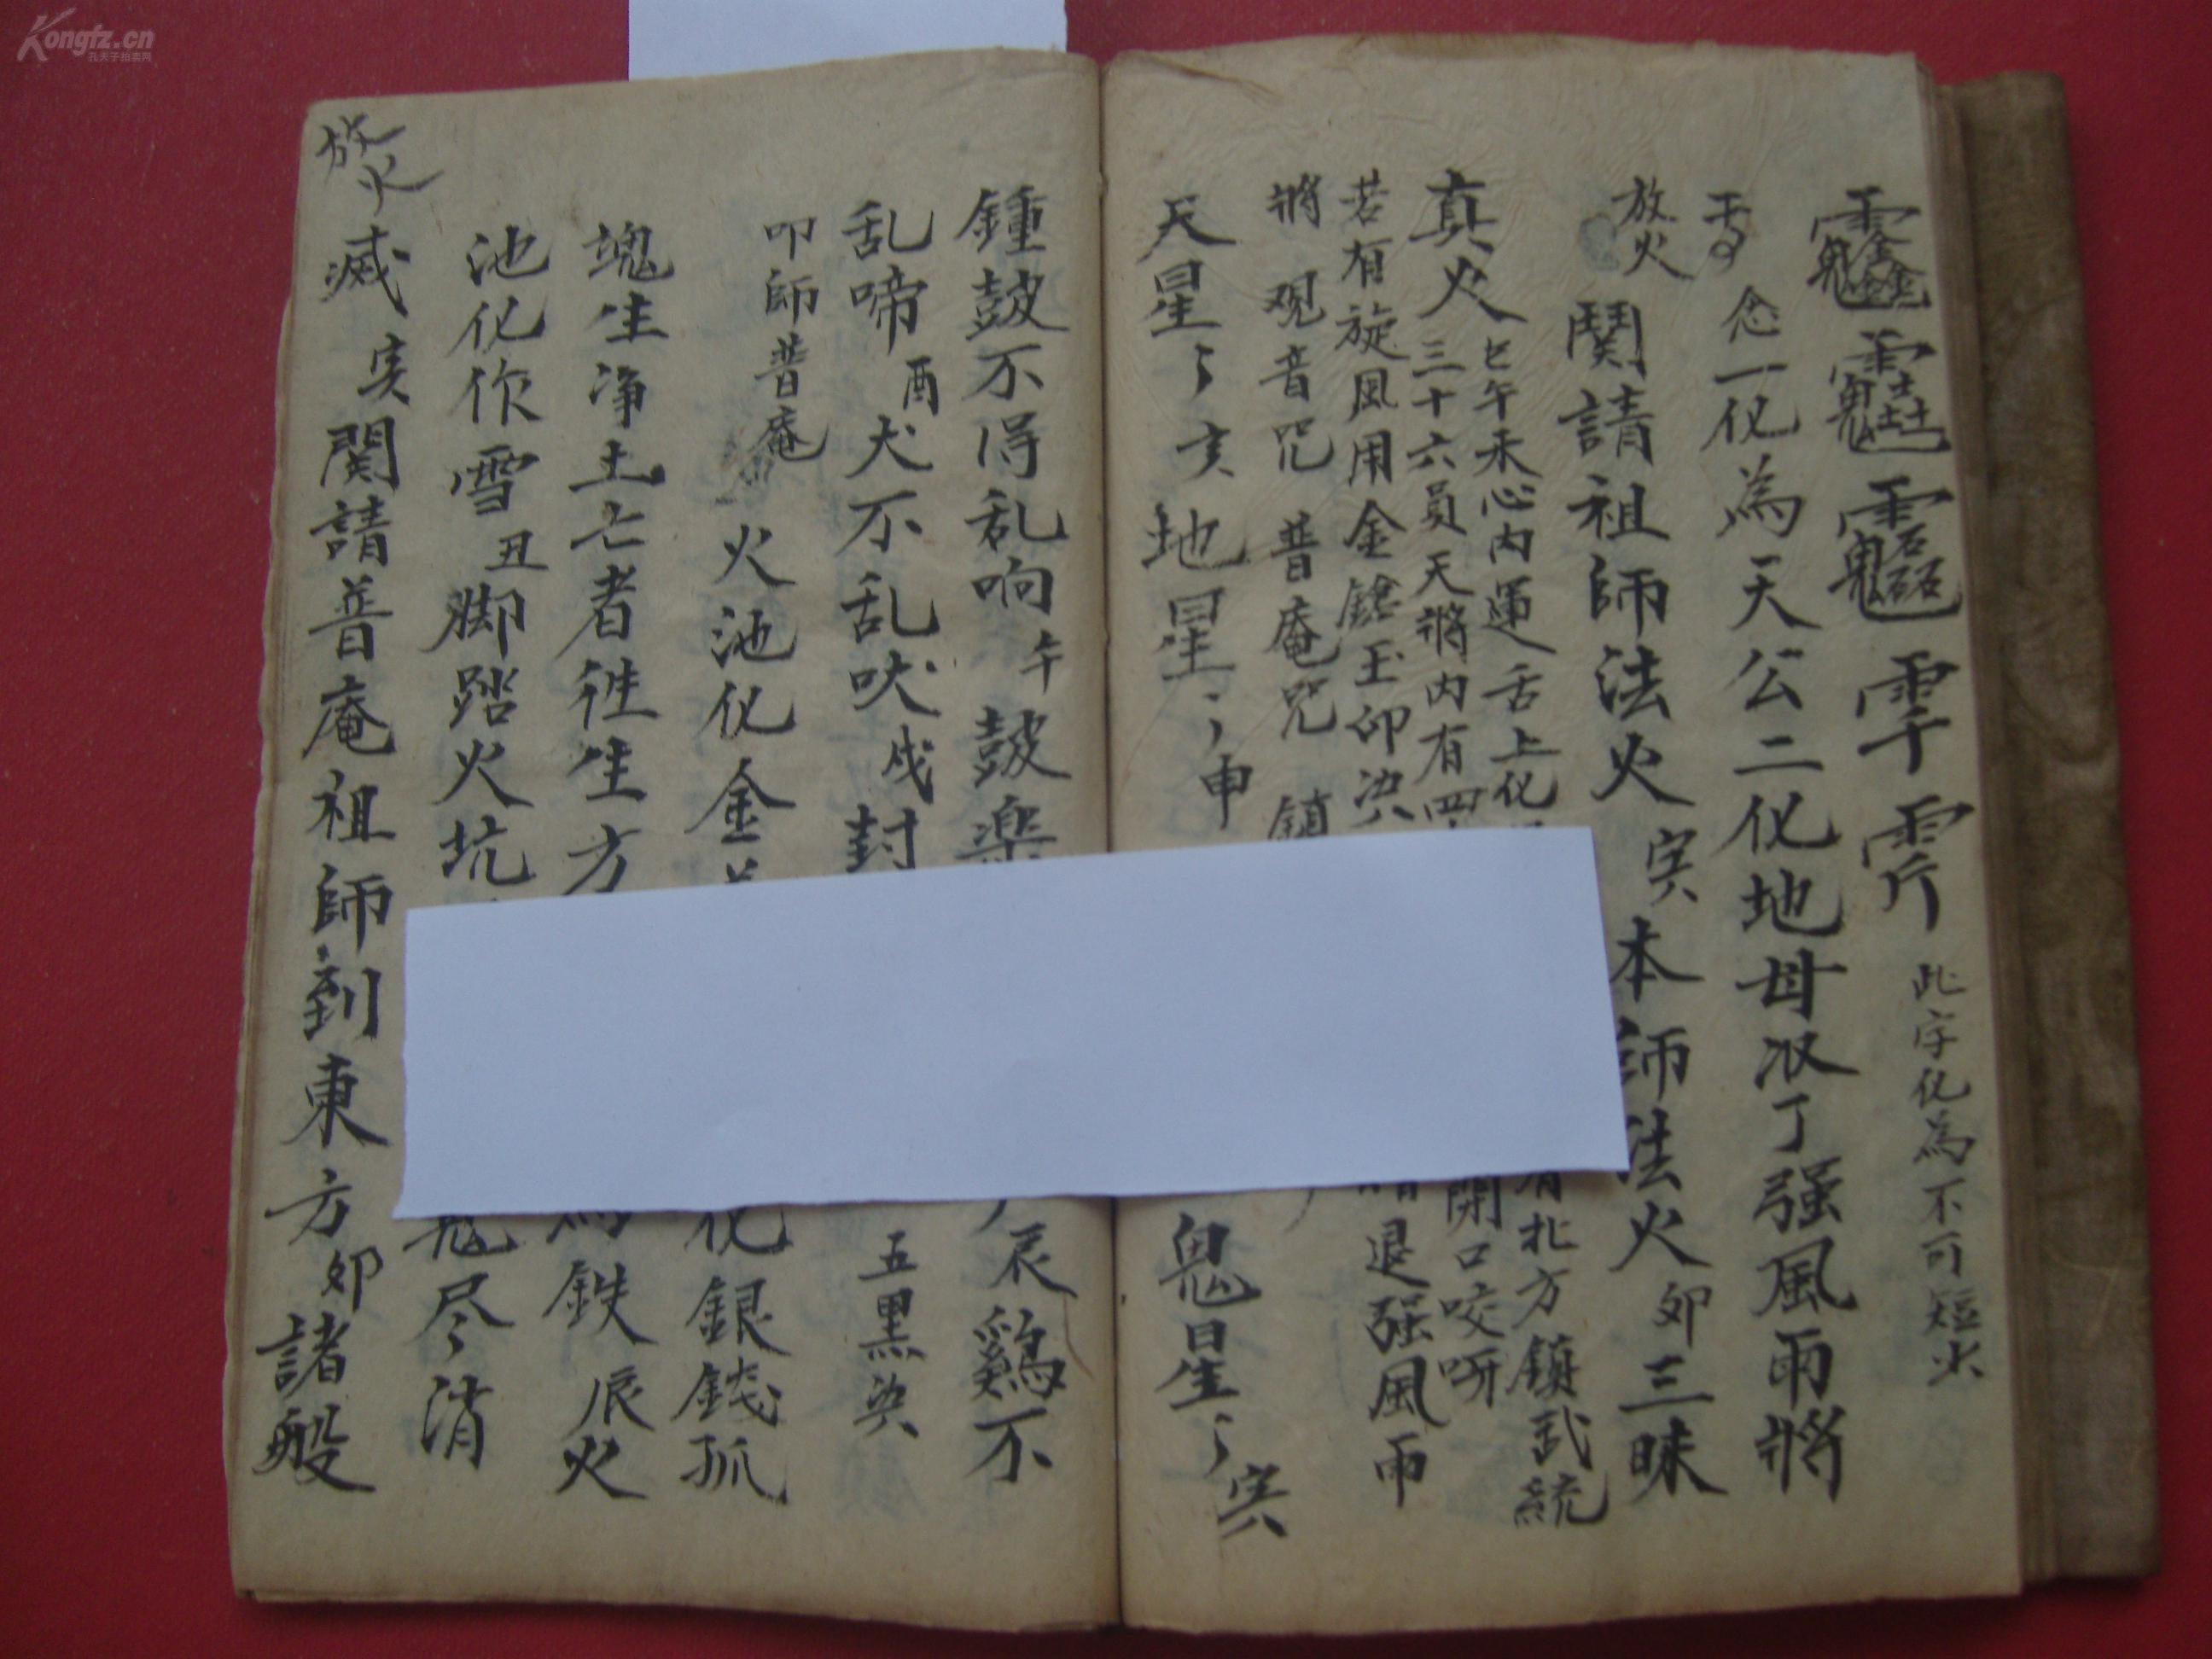 Kongfz.cn
孔夫子拍卖网
此字化為不可短火
念一化為天公二化地母收丁强風雨將
放火
関請祖師法火寅本師法火卯三昧
真火
巳午未心内運舌上化
有北方鎮武統
三十六員天將内有四
開口咬呀
若有旋風用金鎗玉印决
退强風雨
將观音咒普庵咒鎮
天星〻亥地星〻申
鬼星〻寅
鍾鼓不得乱响午鼓樂
辰鷄不
乱啼酉犬不乱吠戌封
五黑
叩師普庵火池化金
化銀錢孤
魂生净土亡者徃生方
為鉄辰火
池化作雪丑脚踏火坑
鬼尽消
放火
滅寅関請普庵祖師到東方卯諸般